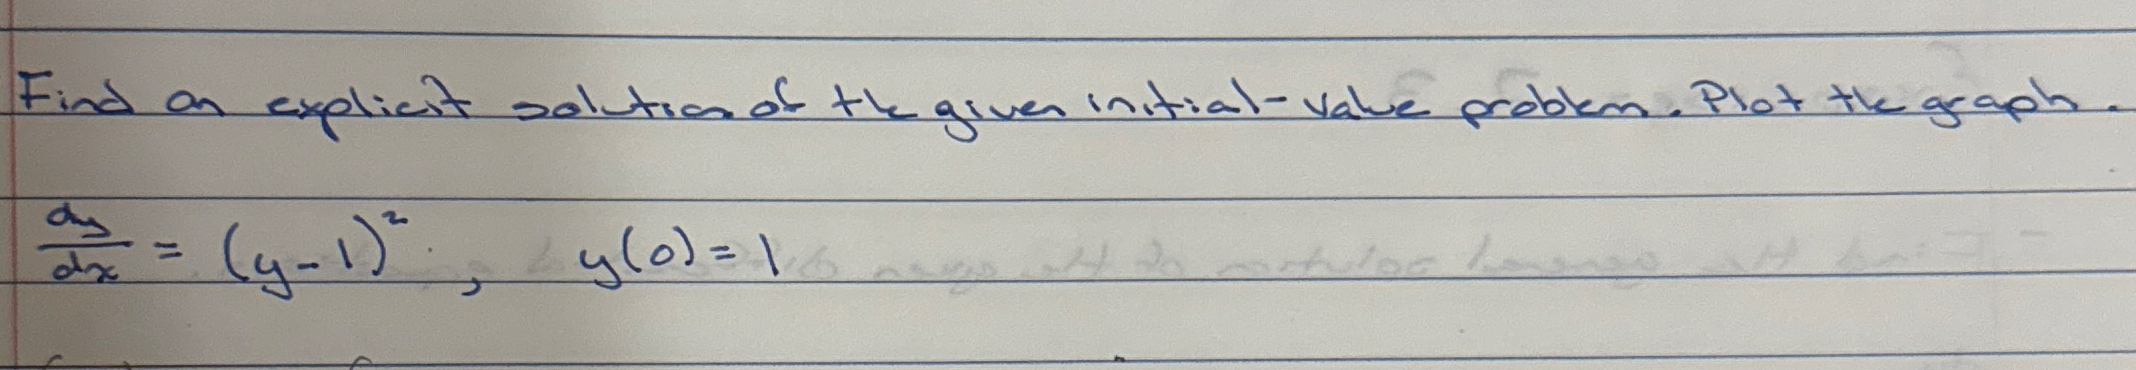 Find an explicit solution of the given initial-value problem. Plot the graph.
dy/dx = (y-1)², y(0)=1